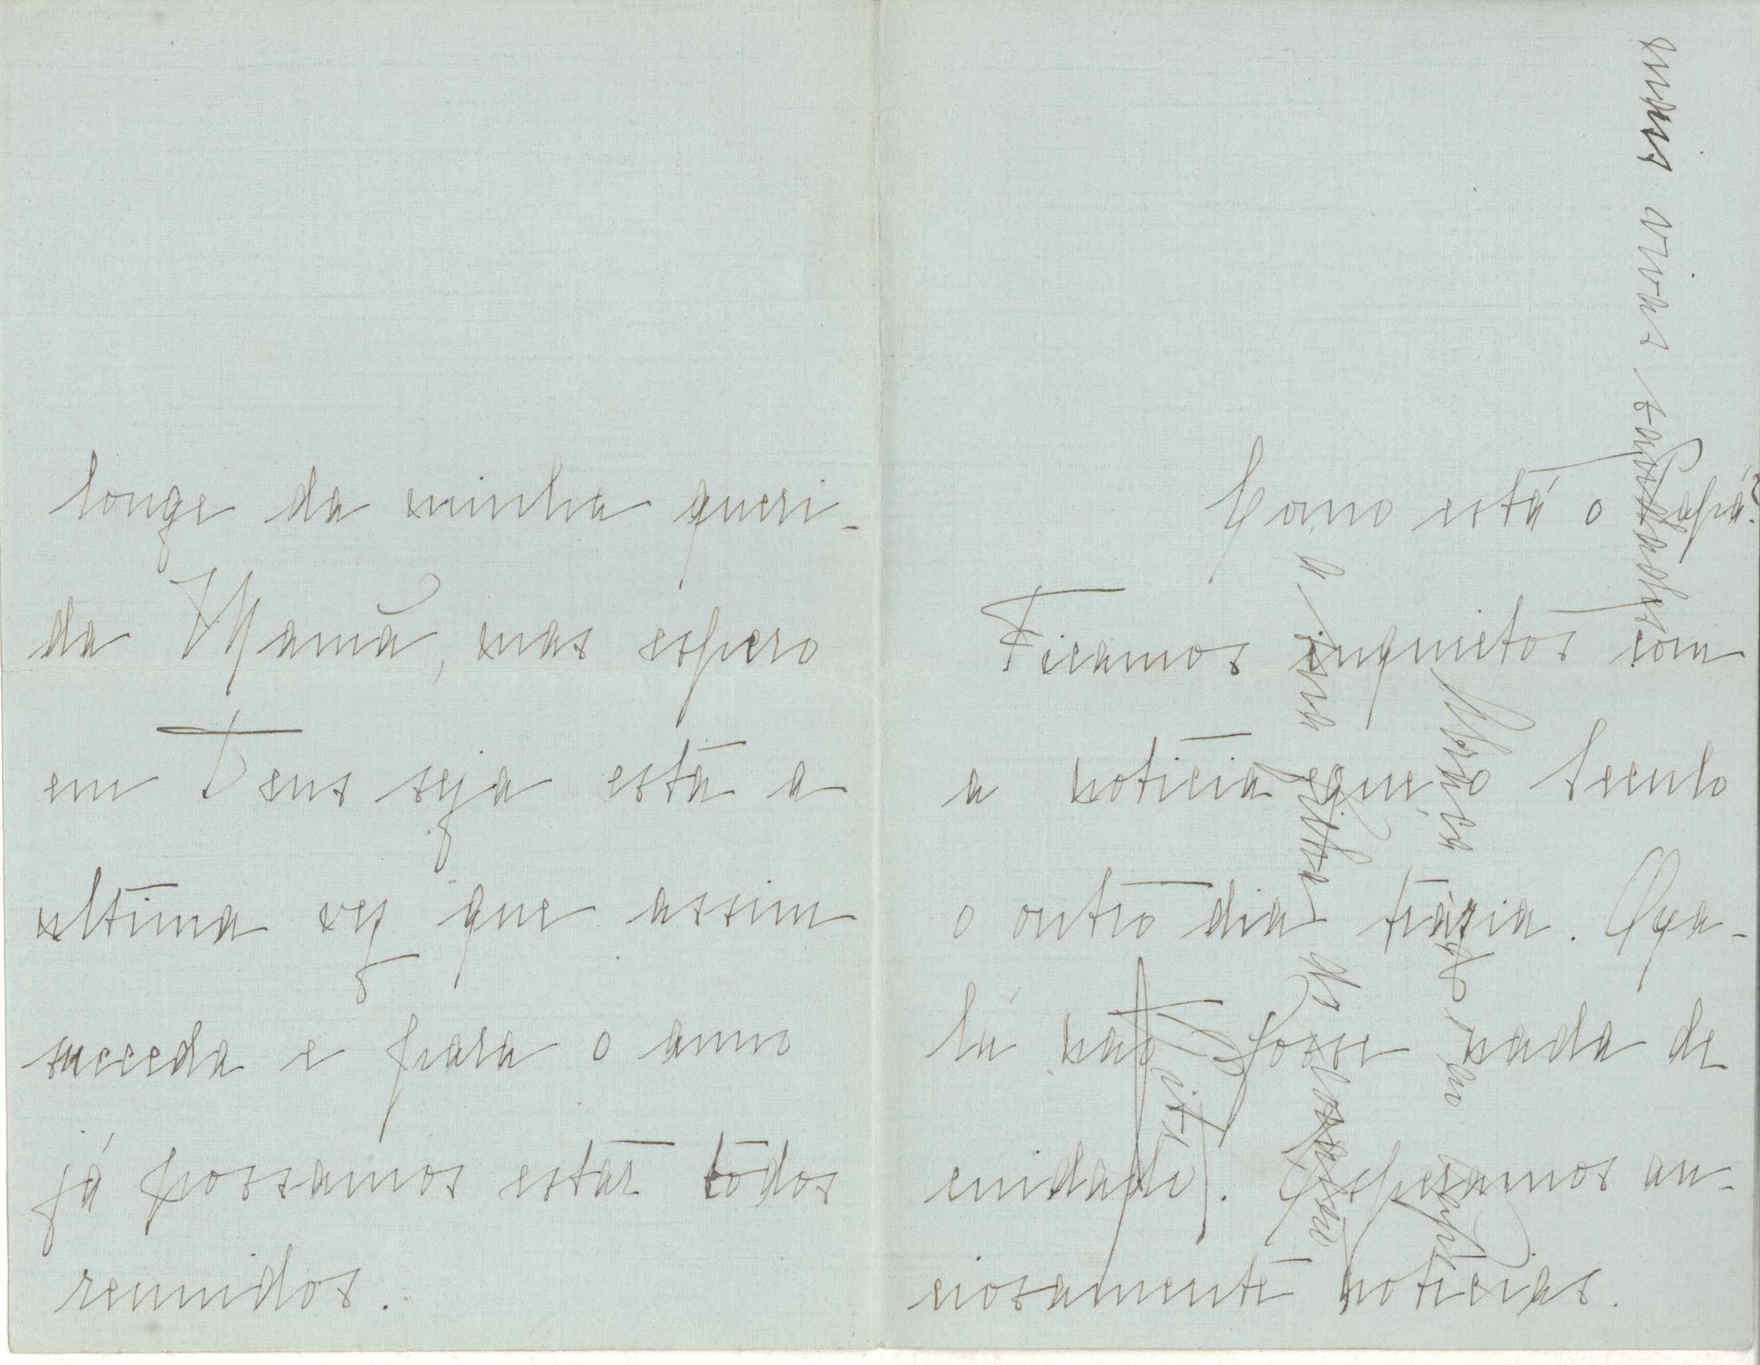 longe da minha queri-
da Mamã, mas espero
em Deus seja esta a
ultima vez que assim
succeda e para o anno
já possamos estar todos
reunidos.
Como está o Papá?
Ficamos inquietos com
a noticia que o Seculo
o outro dia trazia. Oxa-
lá não fosse nada de
cuidado. Esperamos an-
ciosamente noticias.
mais vivas saudades
abença
a sua filha do coração